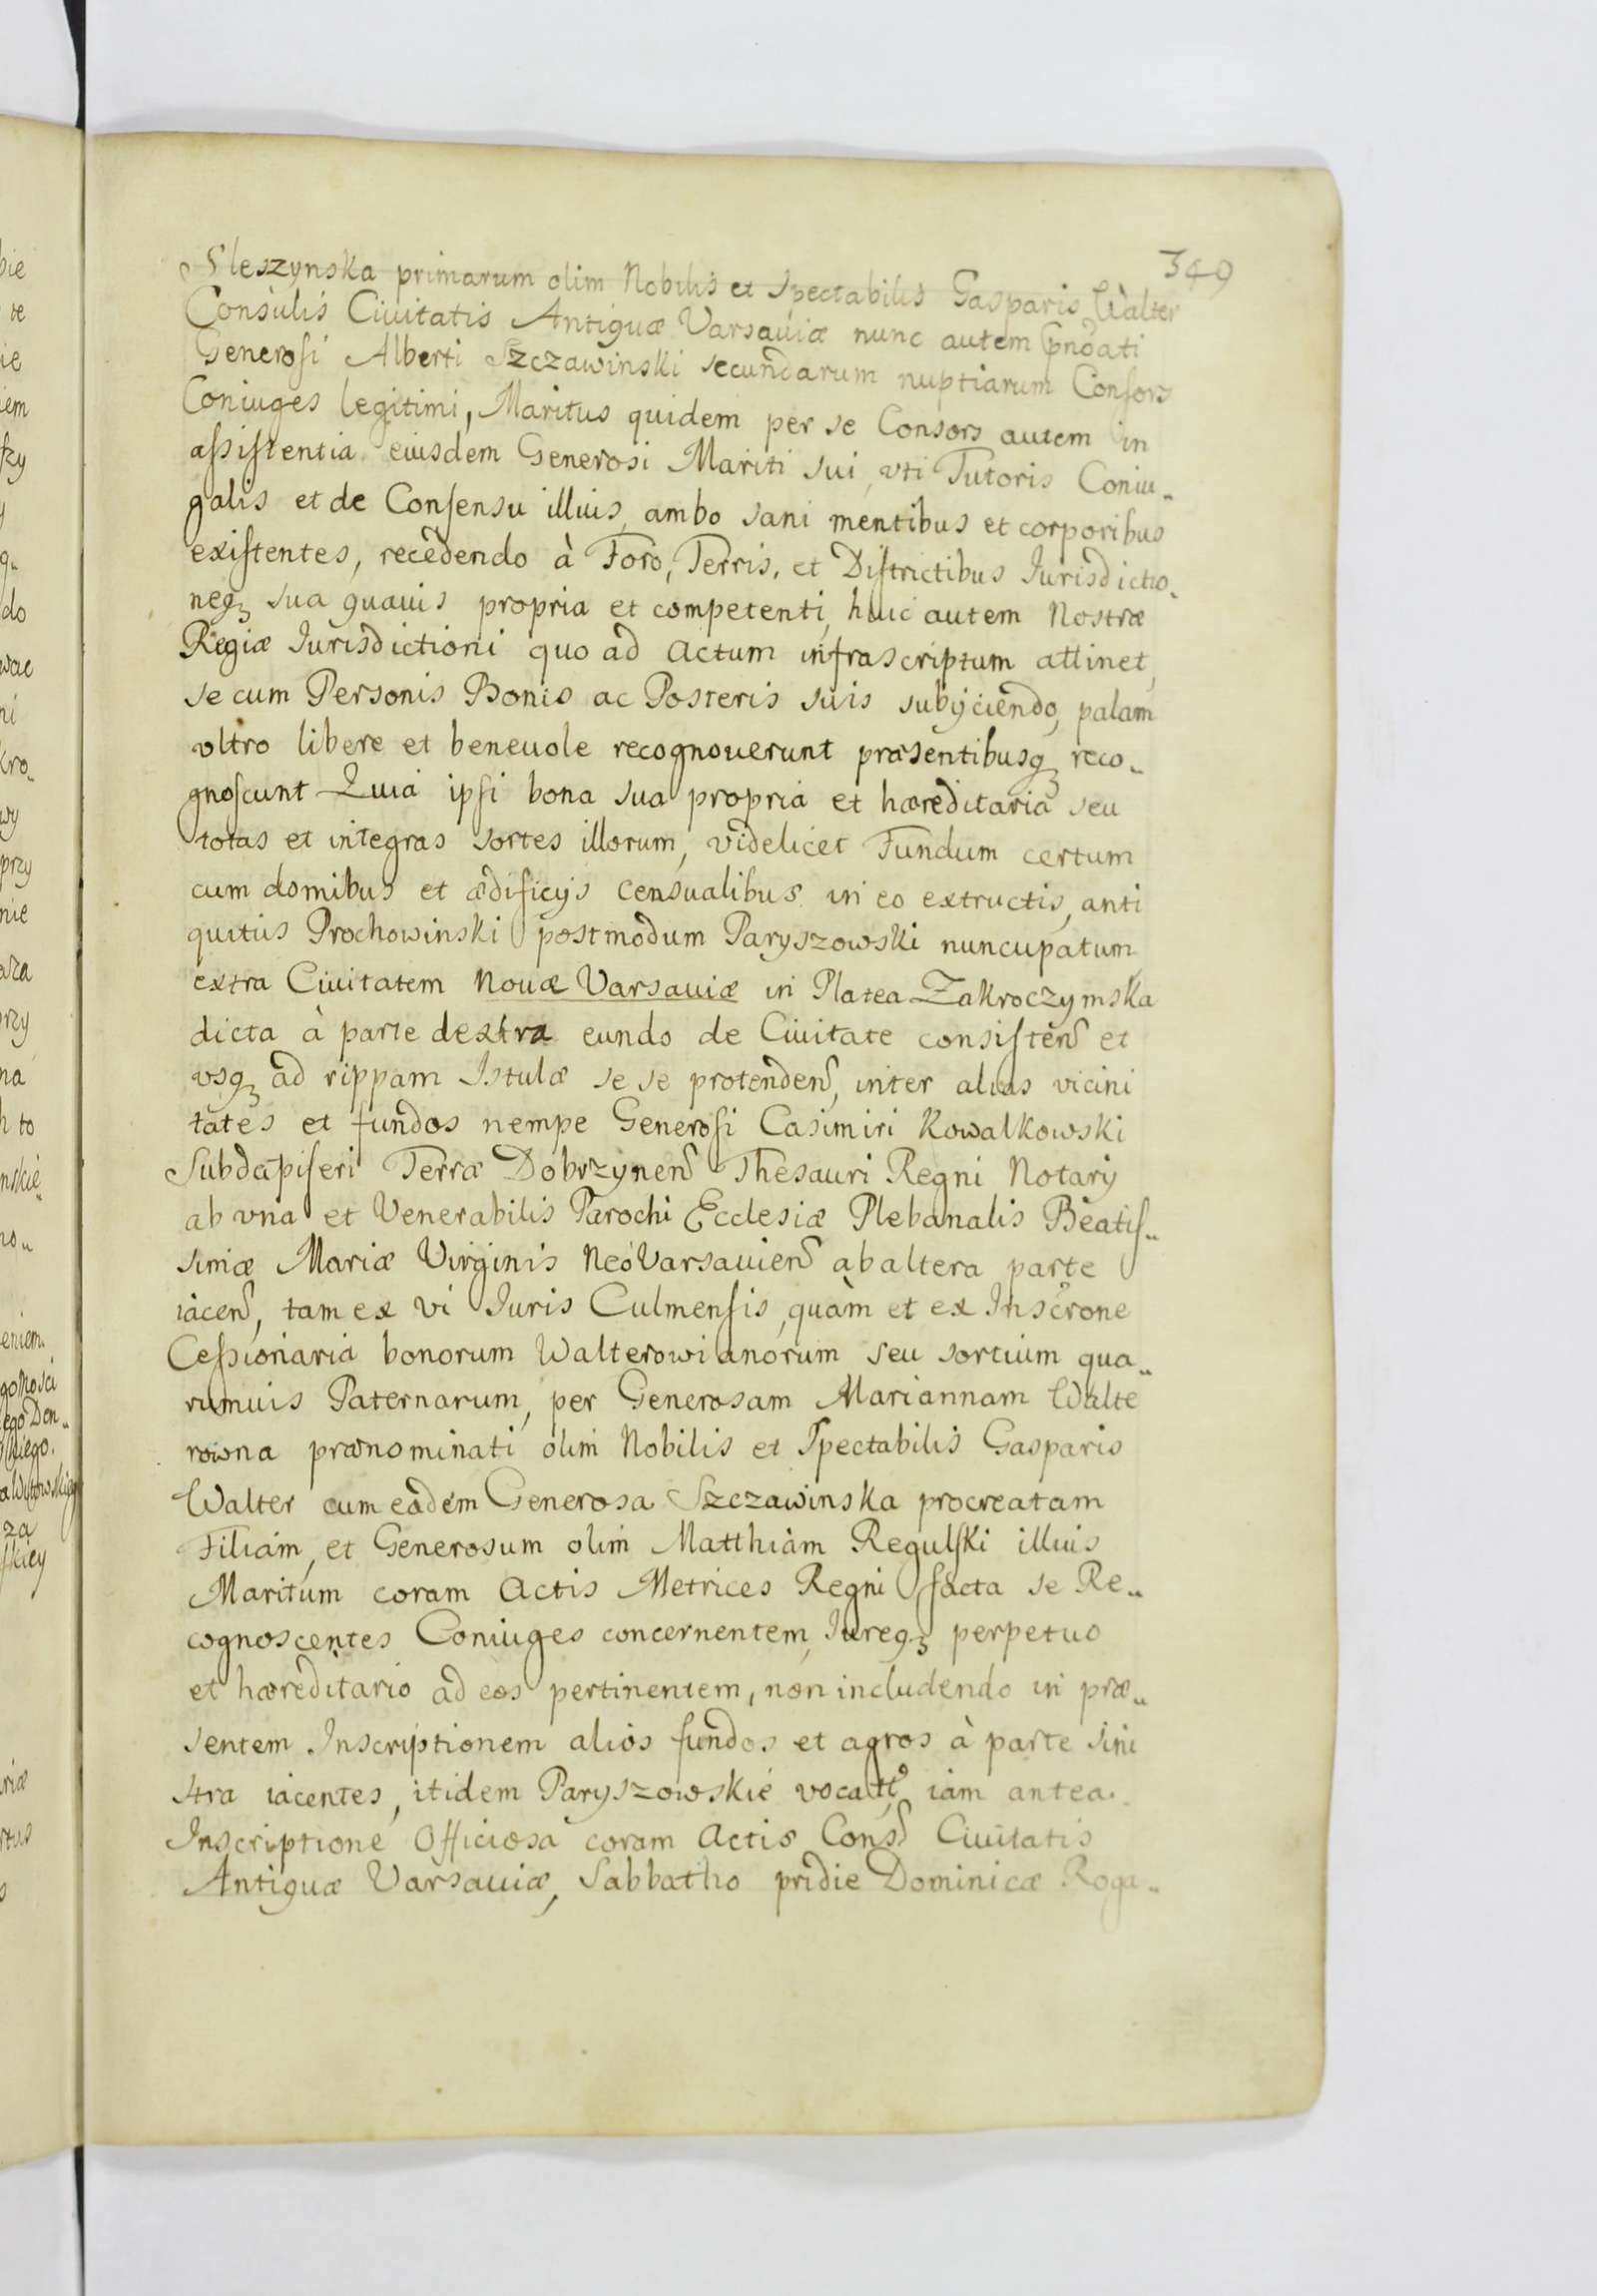 349
Sleszynska primarum olim Nobilis et Spectabilis Gasparis Walter
Consulis Ciuitatis Antiquæ Varsauiæ nunc autem Gnõati
Generosi Alberti Szczawinski secundarum nuptiarum Consors
Coniuges legitimi, Maritus quidem per se Consors autem in
assistentia eiusdem Generosi Mariti sui, vti Tutoris Coniu„
galis et de Consensu illius, ambo sani mentibus et corporibus
existentes, recedendo à Foro, Terris, et Districtibus Iurisdictio„
neqꝫ sua quauis propria et competenti, huic autem Nostræ
Regiæ Iurisdictioni quo ad Actum infrascriptum attinet,
se cum Personis Bonis ac Posteris suis subijciendo, palam
vltro libere et beneuole recognouerunt præsentibusqꝫ reco„
gnoscunt Quia ipsi bona sua propria et hæreditaria seu
totas et integras sortes illorum, videlicet Fundum certum
cum domibus et ædificijs censualibus in eo extructis, anti
quitus Prochowinski postmodum Paryszowski nuncupatum,
extra Ciuitatem Nouæ Varsauiæ in Platea Zakroczymska
dicta à parte dextra eundo de Ciuitate consisteñ et
vsqꝫ ad rippam Istulæ se se protendeñ, inter alias vicini
tates et fundos nempe Generosi Casimiri Kowalkowski
Subdapiferi Terræ Dobrzyneñ Thesauri Regni Notarij
ab vna et Venerabilis Parochi Ecclesiæ Plebanalis Beatis„
simæ Mariæ Virginis NeoVarsauieñ ab altera parte
iaceñ, tam ex vi Iuris Culmensis, quàm et ex Inscrõne
Cessionaria bonorum Walterowianorum seu sortium qua„
rumuis Paternarum, per Generosam Mariannam Walte
rowna prænominati olim Nobilis et Spectabilis Gasparis
Walter cum eadem Generosa Szczawinska procreatam
Filiam, et Generosum olim Matthiam Regulski illius
Maritum coram Actis Metrices Regni facta se Re„
cognoscentes Coniuges concernentem, Iureqꝫ perpetuo
et hæreditario ad eos pertinentem, non includendo in præ„
sentem Inscriptionem alios fundos et agros à parte sini
stra iacentes, itidem Paryszowskie vocatt̃ iam antea
Inscriptione Officiosa coram Actis Cons̃ Ciuitatis
Antiquæ Varsauiæ, Sabbatho pridie Dominicæ Roga„